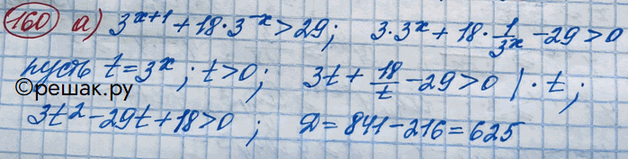 160 а) 3^{x+1} + 18·3^{-x} > 29; 3·3^x + 18·\frac{1}{3^x} - 29 > 0
пусть t = 3^x; t > 0; 3t + \frac{18}{t} - 29 > 0 | · t;
©решак.ру
3t² - 29t + 18 > 0; D = 841 - 216 = 625